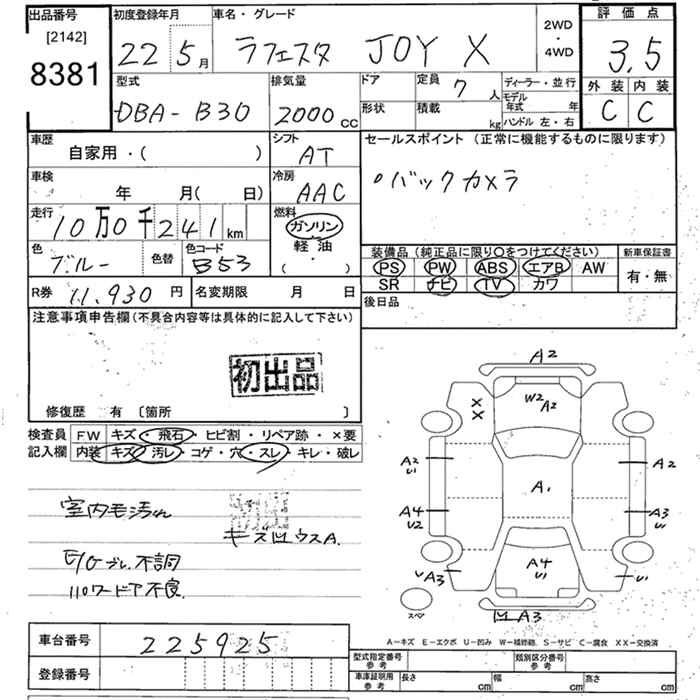 出品番号 初度登録年月 車名・グレード 2WD・4WD 評価点
[2142]
8381 22 5月 ラフェスタ JOY X 3.5
型式 排気量 ドア 定員 7人 ディーラー・並行 外装 内装
DBA-B30 2000cc 形状 積載 kg モデル年式 年 C C
ハンドル 左・右
車歴 シフト セールスポイント (正常に機能するものに限ります)
自家用・( ) AT
車検 冷房 。バックカメラ
年 月( 日) AAC
走行 燃料
10万0千241km ガソリン
色 色替 色コード 軽油 装備品 (純正品に限り○をつけてください) 新車保証書
ブルー B53 (・) PS PW ABS エアB AW 有・無
R券 11,930円 名変期限 月 日 SR ナビ TV カワ
後日品
注意事項申告欄(不具合内容等は具体的に記入して下さい)
初出品
修復歴 有 〔箇所 〕
検査員 FW キズ・飛石・ヒビ割・リペア跡・×要
記入欄 内装 キズ・汚レ・コゲ・穴・スレ・キレ・破レ
室内モ汚れ
キズ凹ウスA.
E/Gブレ.不調
110ワードア不良
A2
W2 A2
X
X
A2 U1
A2
A1
A4 U2
A3 U1
A4 U1
A3
U1
スペア
凹A3
A-キズ E-エクボ U-凹み W-補修跡 S-サビ C-腐食 XX-交換済
車台番号 225925
型式指定番号 参考 類別区分番号 参考
登録番号
車庫証明用 参考 長さ cm 幅 cm 高さ cm